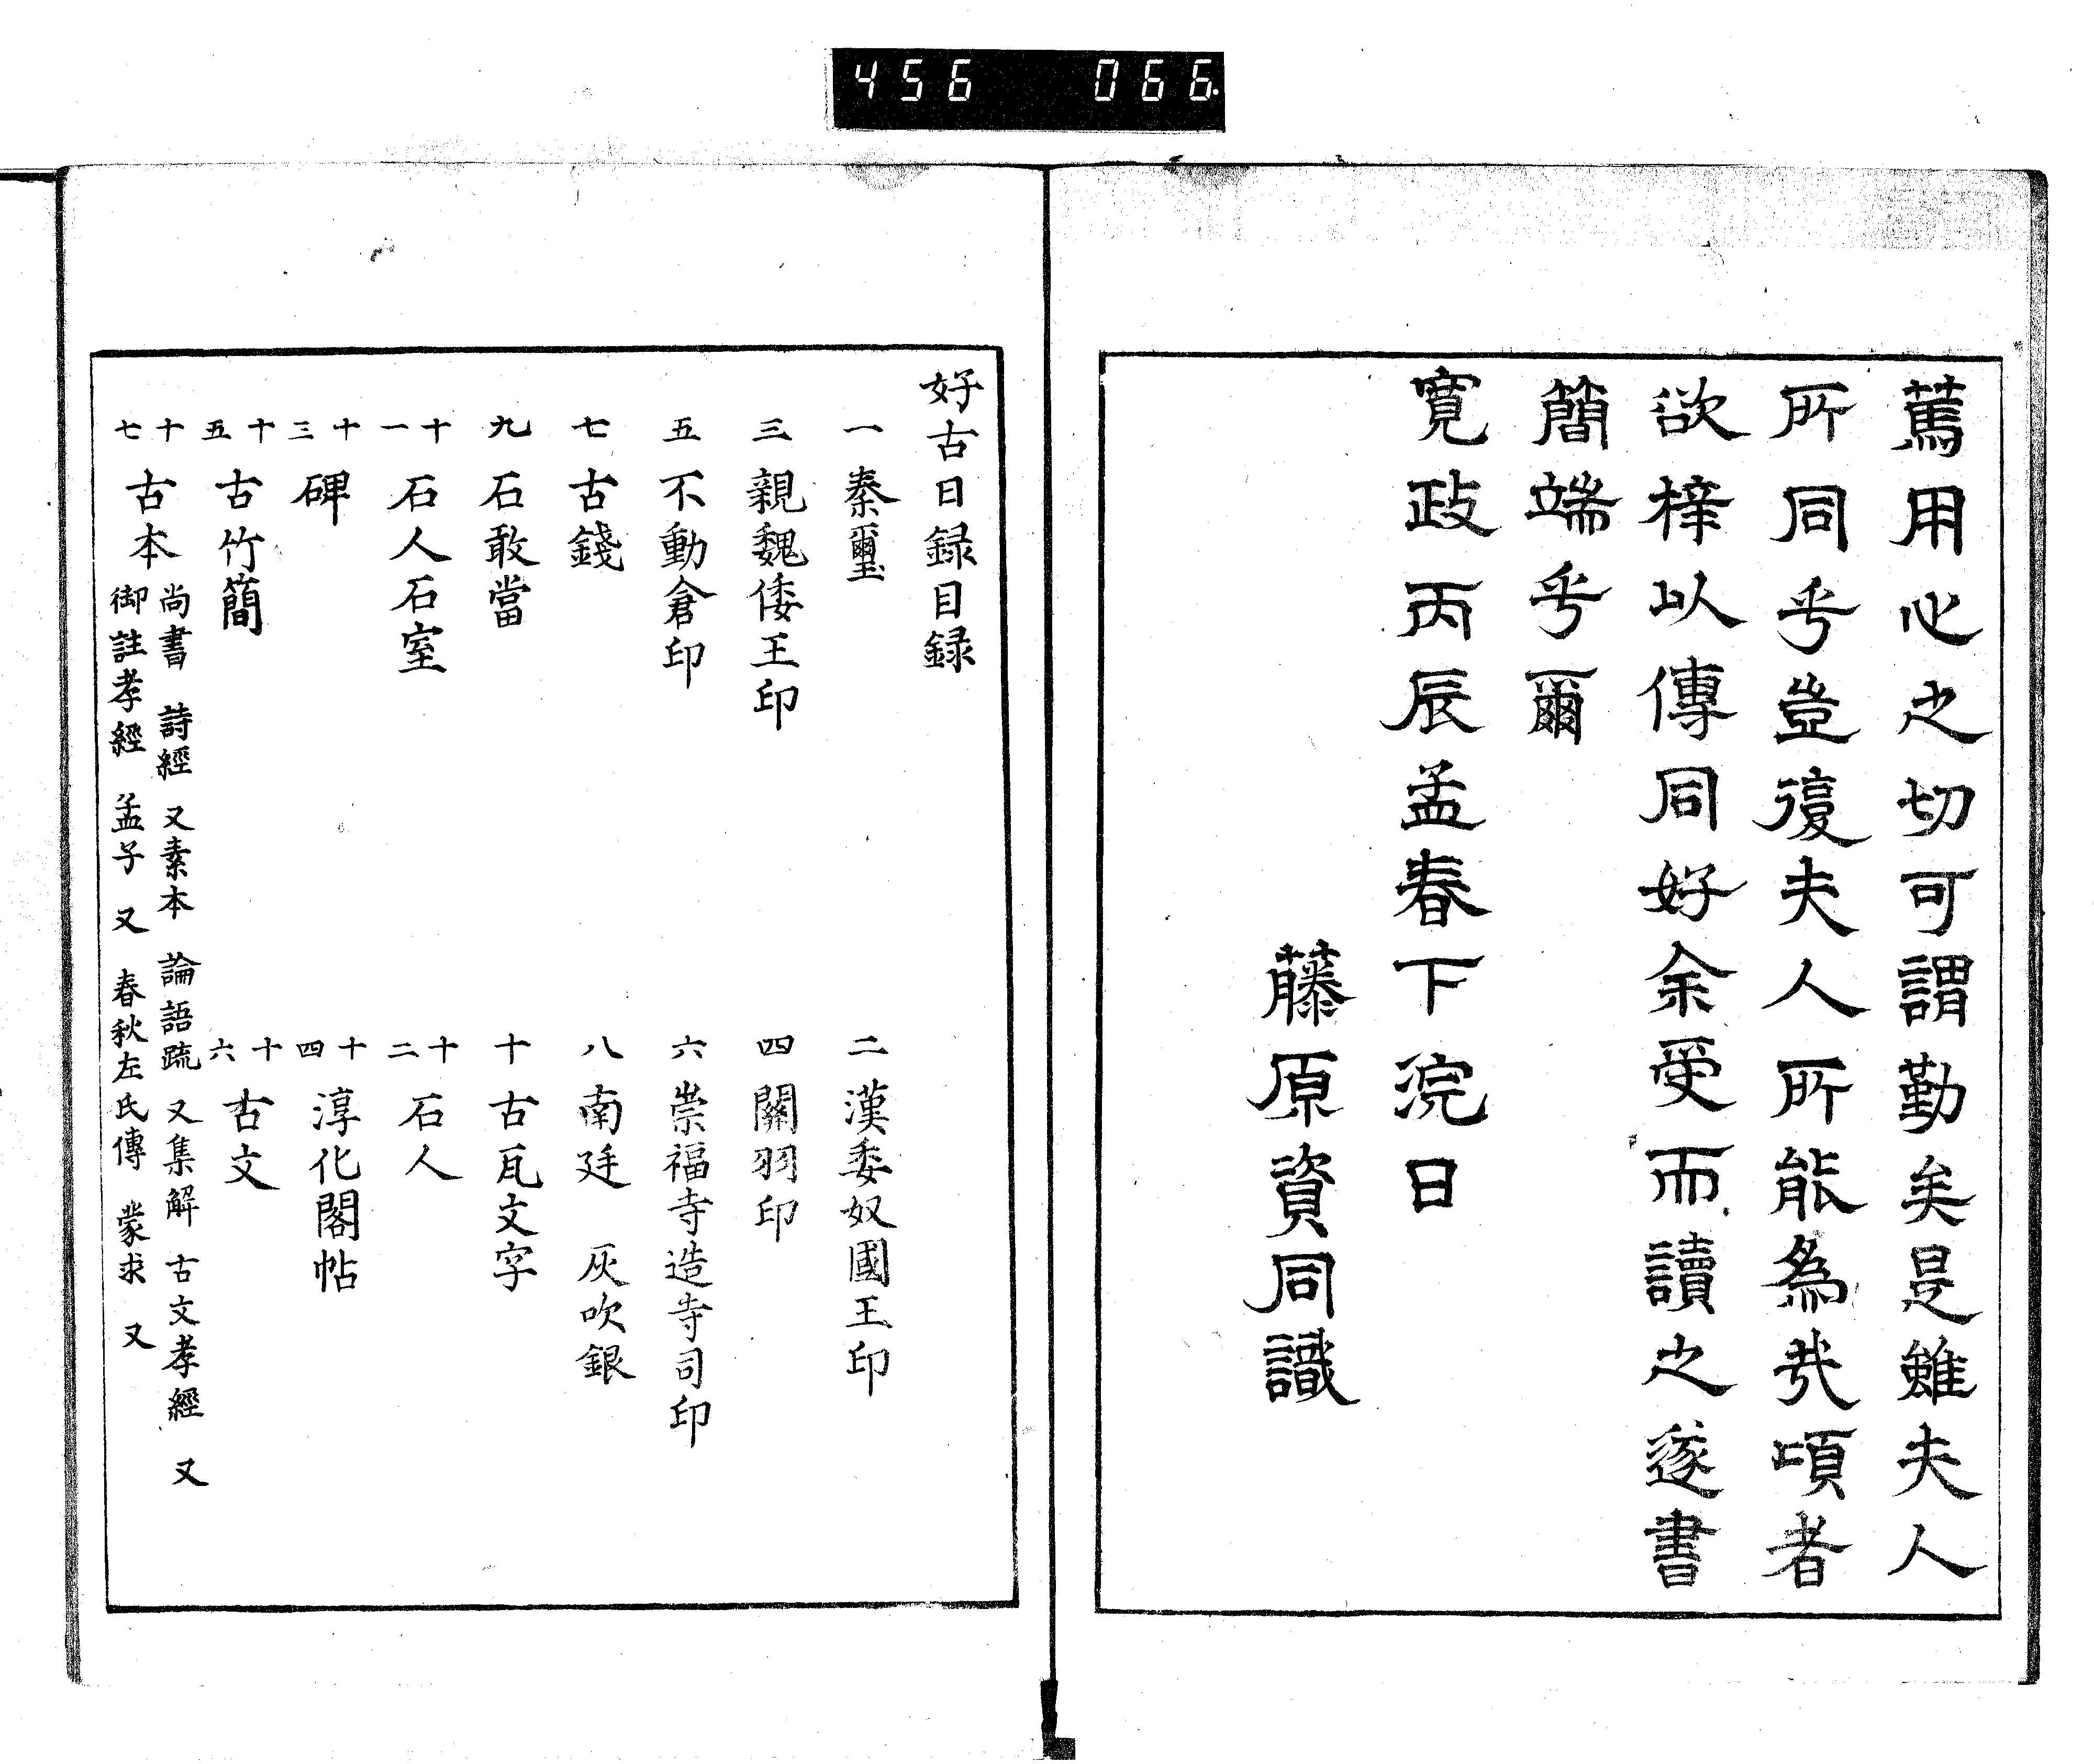 456 066
篤用心之切可謂勤矣是雖夫人
所同乎豈復夫人所能為哉頃者
欲梓以傳同好余受而讀之遂書
簡端乎爾
寛政丙辰孟春下浣日
藤原資同識
好古日録目録
一 秦璽
二 漢委奴國王印
三 親魏倭王印
四 關羽印
五 不動倉印
六 崇福寺造寺司印
七 古錢
八 南廷 灰吹銀
九 石敢當
十 古瓦文字
十一 石人石室
十二 石人
十三 碑
十四 淳化閣帖
十五 古竹簡
十六 古文
十七 古本
尚書 詩經 又素本 論語疏 又集解 古文孝經 又
御註孝經 孟子 又 春秋左氏傳 蒙求 又